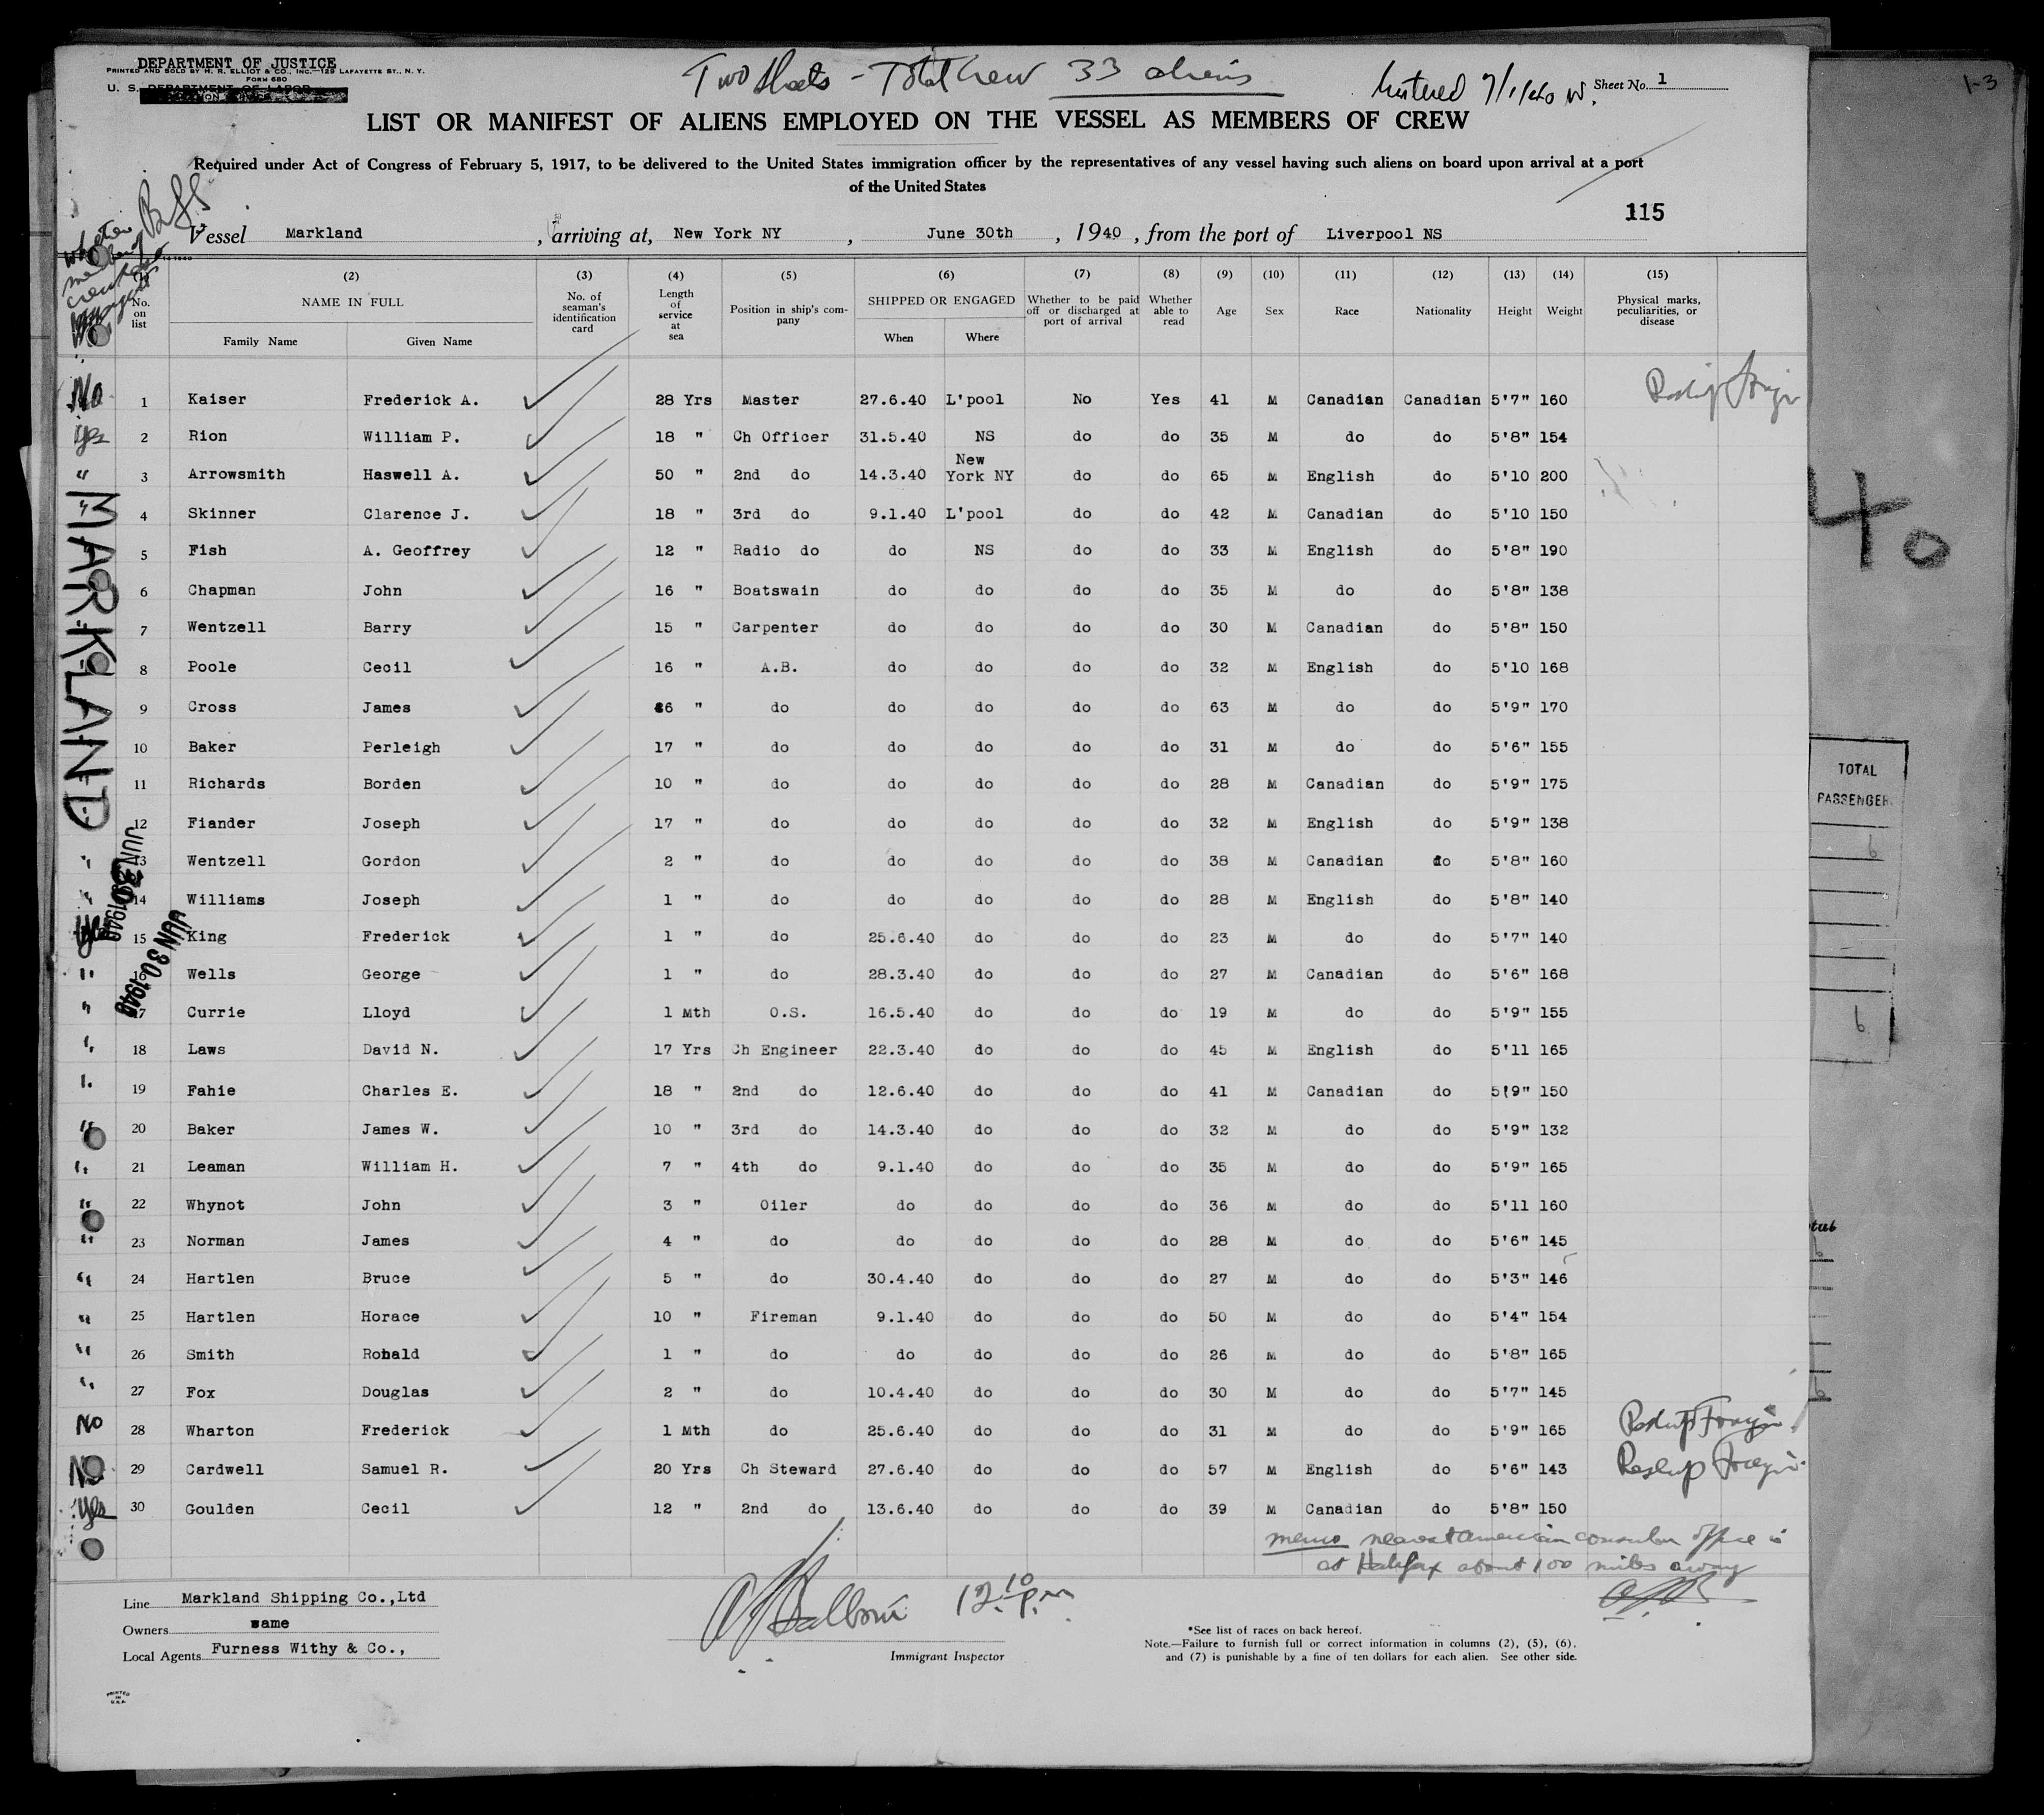 DEPARTMENT OF JUSTICE
PRINTED AND SOLD BY H. R. ELLIOT & CO., INC.—129 LAFAYETTE ST., N. Y.
FORM 680
U. S. DEPARTMENT OF LABOR
Two sheets - Total crew 33 aliens
Sheet No. 1
1-3
LIST OR MANIFEST OF ALIENS EMPLOYED ON THE VESSEL AS MEMBERS OF CREW
Required under Act of Congress of February 5, 1917, to be delivered to the United States immigration officer by the representatives of any vessel having such aliens on board upon arrival at a port
of the United States
115
Vessel Markland, arriving at, New York NY, June 30th, 1940, from the port of Liverpool NS
(1) No. on list (2) NAME IN FULL Family Name Given Name (3) No. of seaman's identification card (4) Length of service at sea (5) Position in ship's company (6) SHIPPED OR ENGAGED When Where (7) Whether to be paid off or discharged at port of arrival (8) Whether able to read (9) Age (10) Sex (11) Race (12) Nationality (13) Height (14) Weight (15) Physical marks, peculiarities, or disease
No 1 Kaiser Frederick A. 28 Yrs Master 27.6.40 L'pool No Yes 41 M Canadian Canadian 5'7" 160
Yes 2 Rion William P. 18 " Ch Officer 31.5.40 NS do do 35 M do do 5'8" 154
" 3 Arrowsmith Haswell A. 50 " 2nd do 14.3.40 New York NY do do 65 M English do 5'10 200
4 Skinner Clarence J. 18 " 3rd do 9.1.40 L'pool do do 42 M Canadian do 5'10 150
5 Fish A. Geoffrey 12 " Radio do do NS do do 33 M English do 5'8" 190
6 Chapman John 16 " Boatswain do do do do 35 M do do 5'8" 138
7 Wentzell Barry 15 " Carpenter do do do do 30 M Canadian do 5'8" 150
8 Poole Cecil 16 " A.B. do do do do 32 M English do 5'10 168
9 Cross James 6 " do do do do do 63 M do do 5'9" 170
10 Baker Perleigh 17 " do do do do do 31 M do do 5'6" 155
11 Richards Borden 10 " do do do do do 28 M Canadian do 5'9" 175
12 Fiander Joseph 17 " do do do do do 32 M English do 5'9" 138
" 13 Wentzell Gordon 2 " do do do do do 38 M Canadian do 5'8" 160
" 14 Williams Joseph 1 " do do do do do 28 M English do 5'8" 140
15 King Frederick 1 " do 25.6.40 do do do 23 M do do 5'7" 140
" 16 Wells George 1 " do 28.3.40 do do do 27 M Canadian do 5'6" 168
" 17 Currie Lloyd 1 Mth O.S. 16.5.40 do do do 19 M do do 5'9" 155
" 18 Laws David N. 17 Yrs Ch Engineer 22.3.40 do do do 45 M English do 5'11 165
" 19 Fahie Charles E. 18 " 2nd do 12.6.40 do do do 41 M Canadian do 5'9" 150
" 20 Baker James W. 10 " 3rd do 14.3.40 do do do 32 M do do 5'9" 132
" 21 Leaman William H. 7 " 4th do 9.1.40 do do do 35 M do do 5'9" 165
" 22 Whynot John 3 " Oiler do do do do 36 M do do 5'11 160
" 23 Norman James 4 " do do do do do 28 M do do 5'6" 145
" 24 Hartlen Bruce 5 " do 30.4.40 do do do 27 M do do 5'3" 146
" 25 Hartlen Horace 10 " Fireman 9.1.40 do do do 50 M do do 5'4" 154
" 26 Smith Ronald 1 " do do do do do 26 M do do 5'8" 165
" 27 Fox Douglas 2 " do 10.4.40 do do do 30 M do do 5'7" 145
No 28 Wharton Frederick 1 Mth do 25.6.40 do do do 31 M do do 5'9" 165
No 29 Cardwell Samuel R. 20 Yrs Ch Steward 27.6.40 do do do 57 M English do 5'6" 143 Reship Foreign
Yes 30 Goulden Cecil 12 " 2nd do 13.6.40 do do do 39 M Canadian do 5'8" 150
MARKLAND
JUN 30 1940
JUN 30 1940
40
TOTAL
PASSENGER
6
6
memo nearest American consular office is
at Halifax about 100 miles away
Line Markland Shipping Co.,Ltd
Owners same
Local Agents Furness Withy & Co.,
12 10 P.m
Immigrant Inspector
*See list of races on back hereof.
Note.—Failure to furnish full or correct information in columns (2), (5), (6),
and (7) is punishable by a fine of ten dollars for each alien. See other side.
PRINTED IN U.S.A.